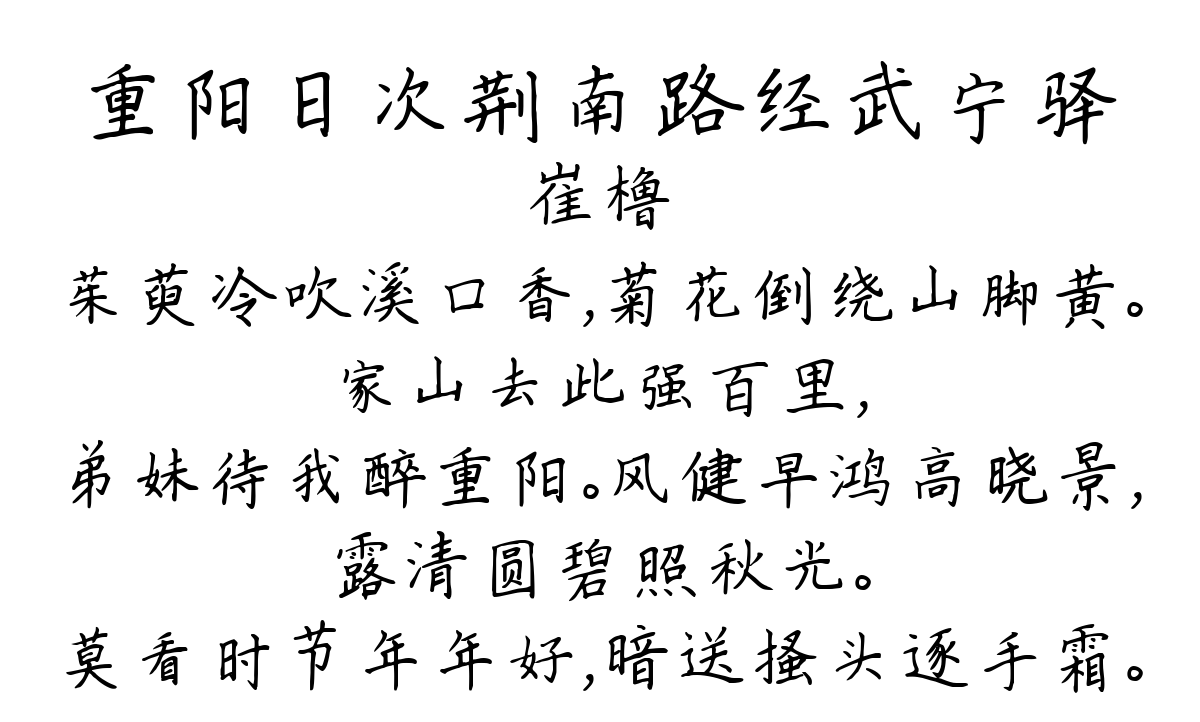 重阳日次荆南路经武宁驿
崔橹
茱萸冷吹溪口香,菊花倒绕山脚黄。
家山去此强百里,
弟妹待我醉重阳。风健早鸿高晓景,
露清圆碧照秋光。
莫看时节年年好,暗送搔头逐手霜。